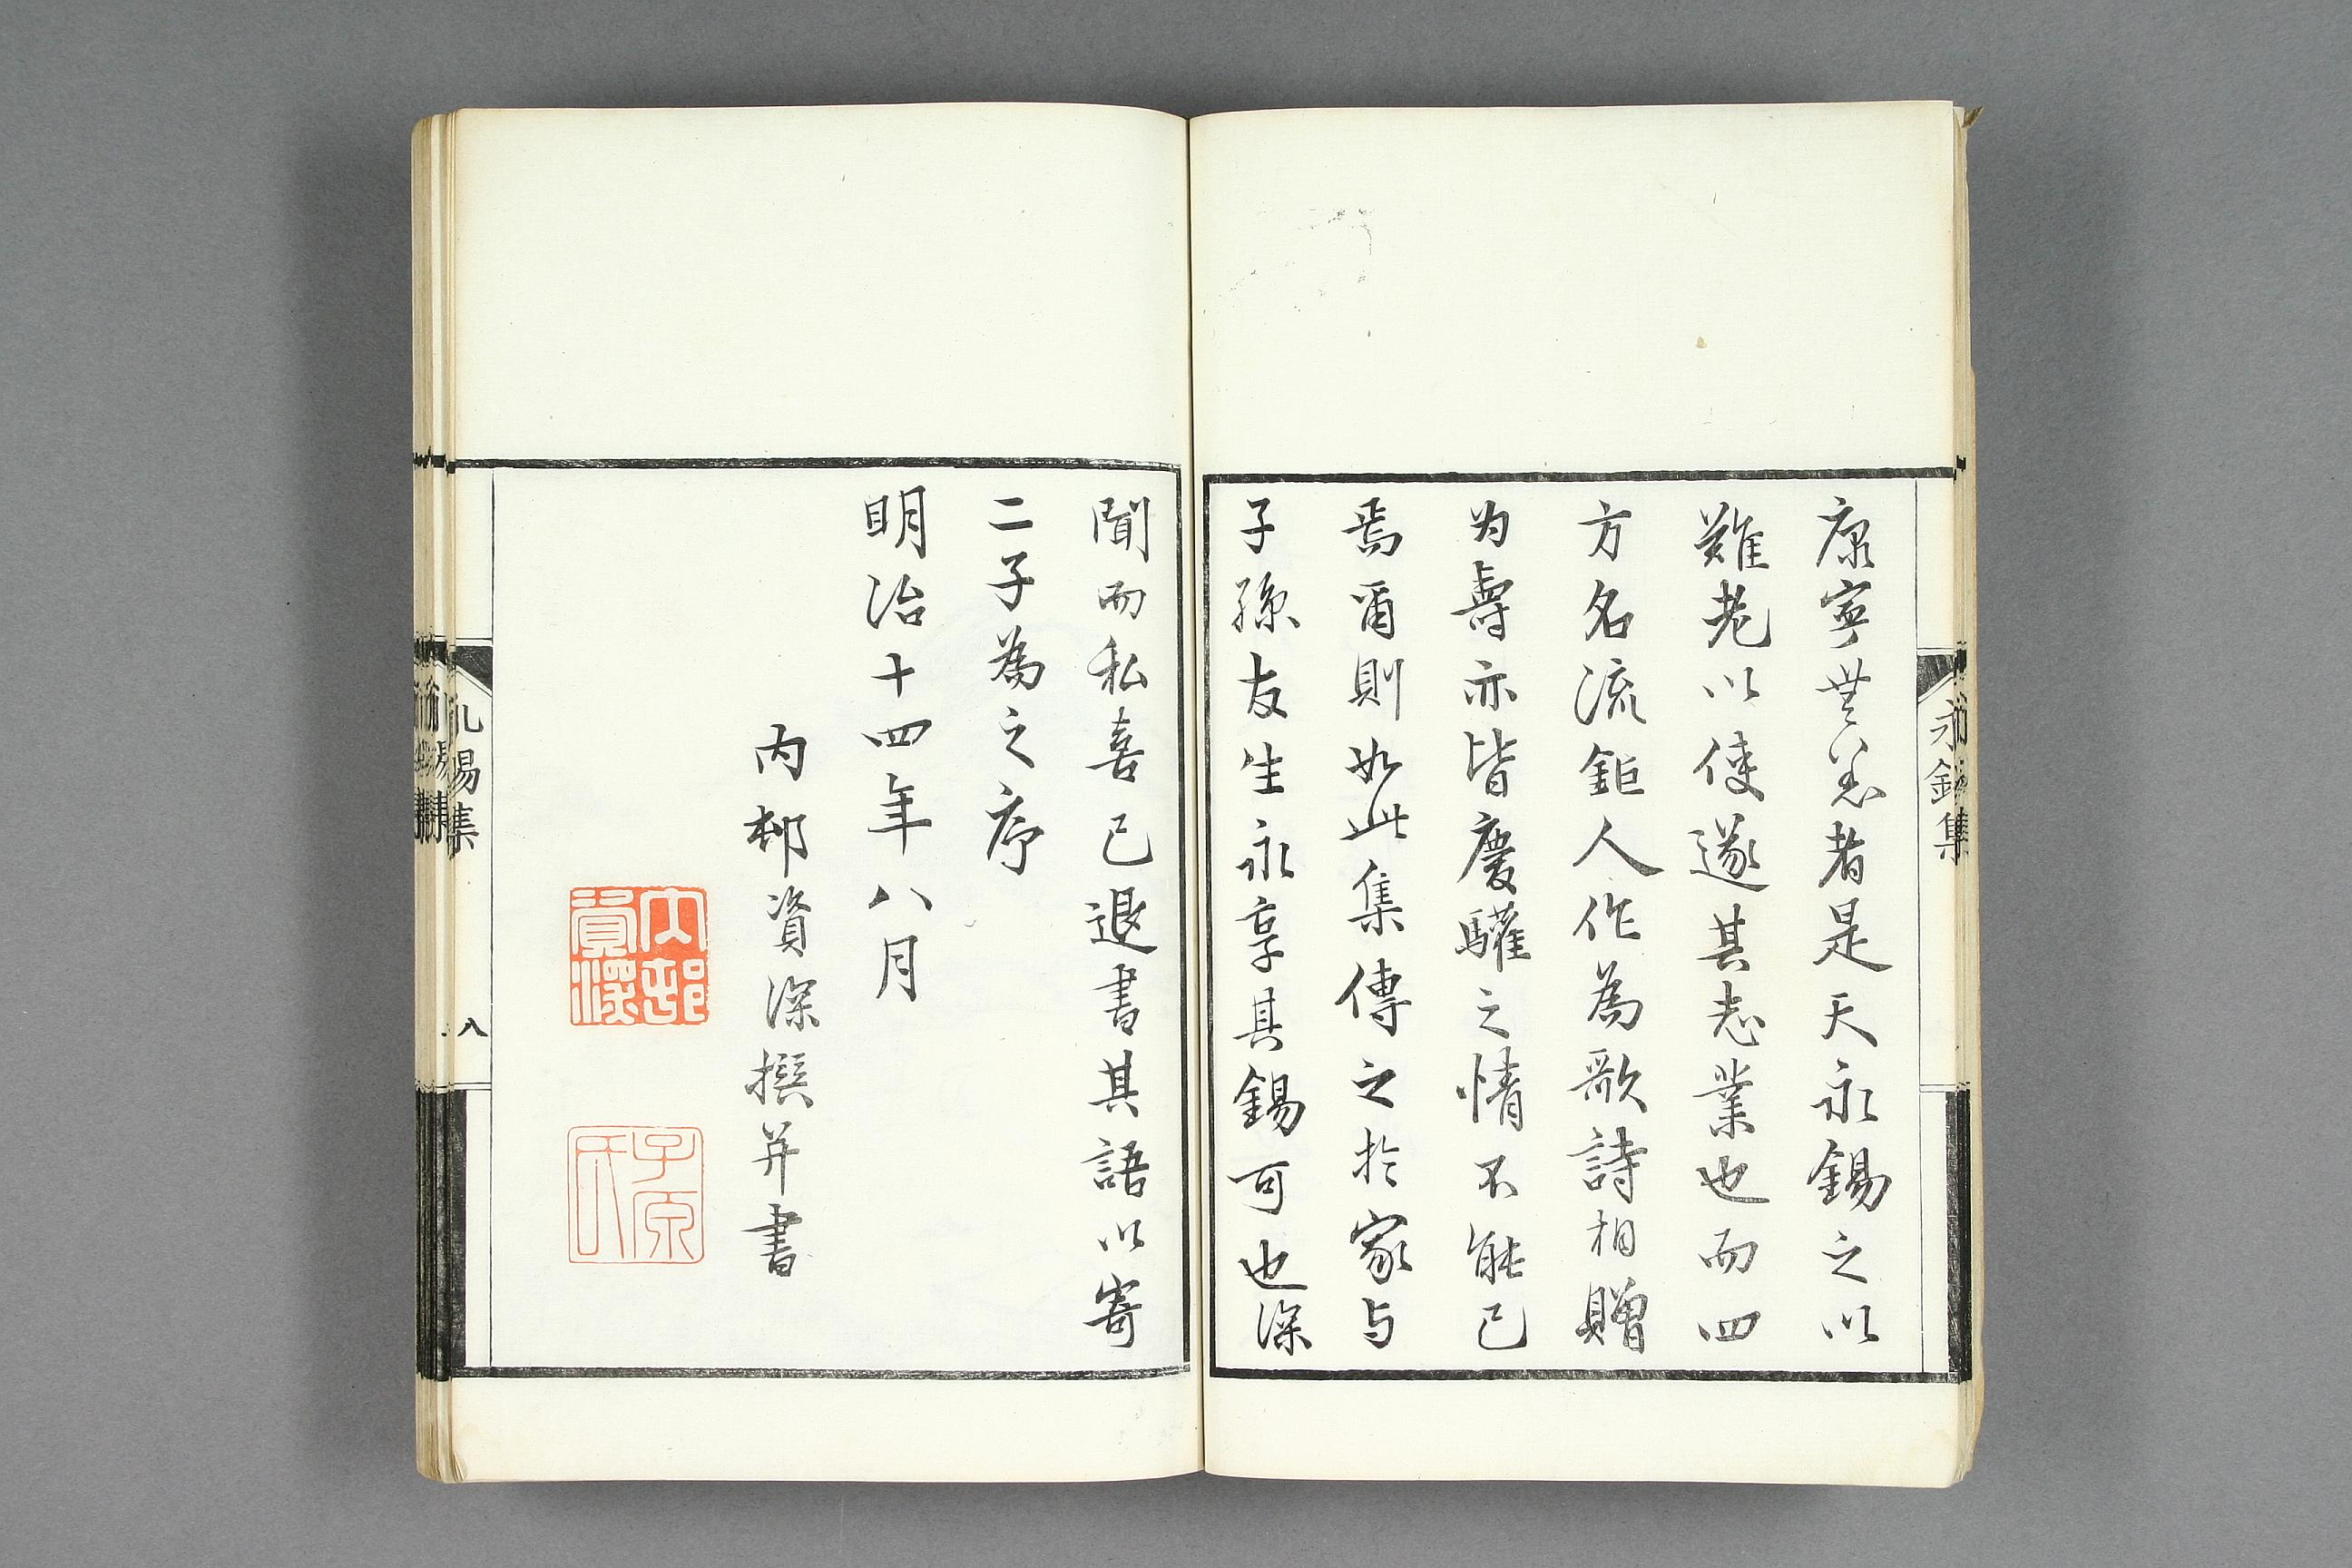 康寧無恙者是天永錫之以
難老以使遂其志業也而四
方名流鉅人作為歌詩相贈
为壽亦皆慶驩之情不能已
焉爾則如此集傳之於家与
子孫友生永享其錫可也深
聞而私喜已退書其語以寄
二子為之序
明治十四年八月
内邨資深撰并書
内邨資深
子原氏
永錫集
八